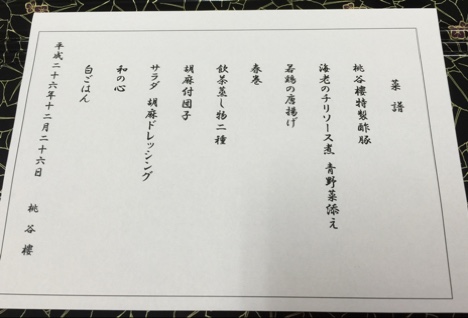 菜譜
桃谷樓特製酢豚
海老のチリソース煮 青野菜添え
若鶏の唐揚げ
春巻
飲茶蒸し物二種
胡麻付団子
サラダ 胡麻ドレッシング
和の心
白ごはん
平成二十六年十二月二十六日 桃谷樓